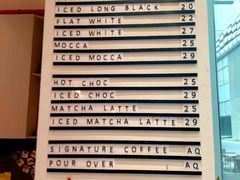 ICED LONG BLACK 20
FLAT WHITE 22
ICED WHITE 27
MOCCA 25
ICED MOCCA 29
HOT CHOC 25
ICED CHOC 29
MATCHA LATTE 25
ICED MATCHA LATTE 29
SIGNATURE COFFEE AQ
POUR OVER AQ